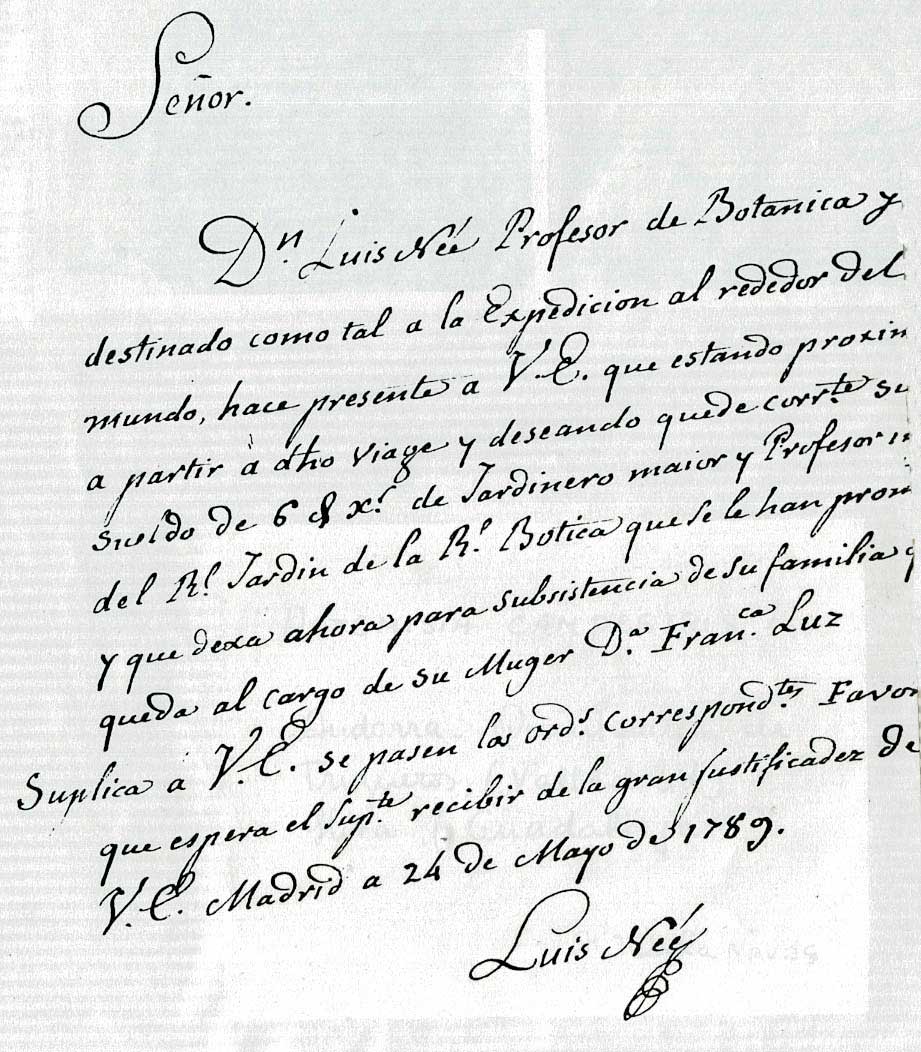 Señor.
Dn. Luis Neé Profesor de Botanica y
destinado como tal a la Expedicion al rededor del
mundo, hace presente a V.E. que estando proxim
a partir à dho viage y deseando quede corrte. su
sueldo de 6 xs. de Jardinero maior y Profesor
del Rl. Jardin de la Rl. Botica que se le han prom
y que dexa ahora para subsistencia de su familia q
queda al cargo de su Muger Da. Franca. Luz
Suplica à V.E. se pasen las ords. correspondtes. Favor
que espera el Supte. recibir de la gran justificadez de
V.E. Madrid a 24 de Mayo de 1789.
Luis Neé